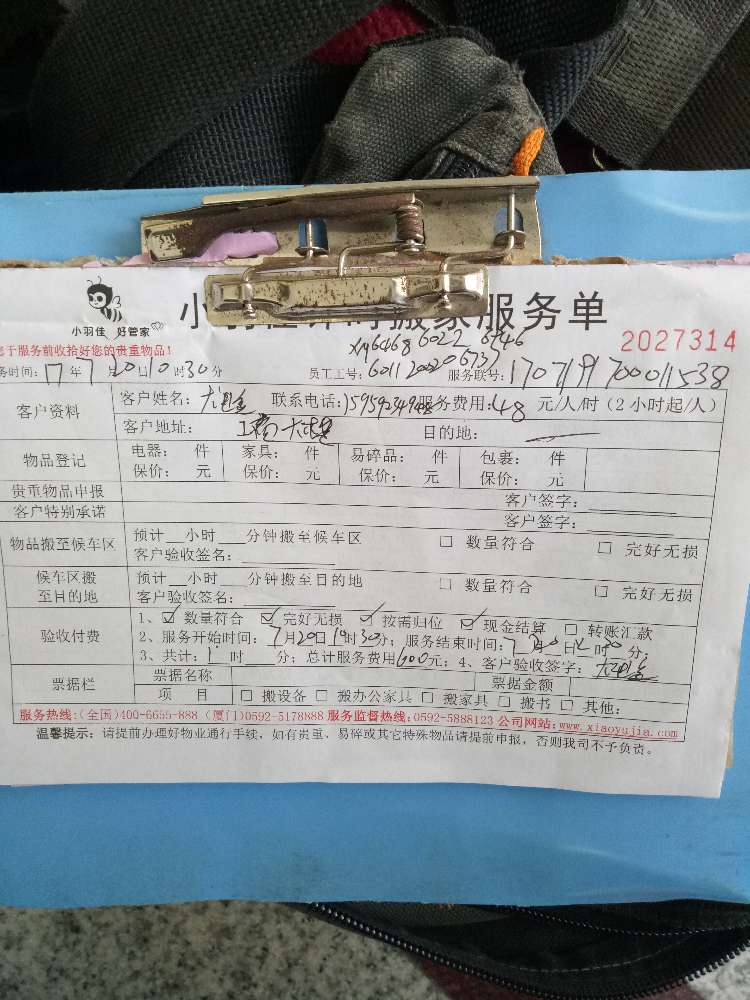 小羽佳 好管家
小羽佳计时搬家服务单
2027314
您于服务前收拾好您的贵重物品!
6022
务时间: 17年7月20日10时30分 员工工号: 服务联号:
客户资料
客户姓名: 联系电话: 服务费用: 48 元/人/时 (2小时起/人)
客户地址: 目的地:
物品登记
电器: 件 家具: 件 易碎品: 件 包裹: 件
保价: 元 保价: 元 保价: 元 保价: 元
贵重物品申报 客户签字:
客户特别承诺 客户签字:
物品搬至候车区
预计__小时___分钟搬至候车区 □ 数量符合 □ 完好无损
客户验收签名:
候车区搬
至目的地
预计__小时___分钟搬至目的地 □ 数量符合 □ 完好无损
客户验收签名:
验收付费
1、☑ 数量符合 ☑ 完好无损 ☑ 按需归位 ☑ 现金结算 □ 转账汇款
2、服务开始时间: 7月20日10时30分; 服务结束时间: 月 日 时 分;
3、共计: 时 分; 总计服务费用 元; 4、客户验收签字:
票据栏
票据名称 票据金额
项 目 □ 搬设备 □ 搬办公家具 □ 搬家具 □ 搬书 □ 其他:
服务热线:(全国)400-6655-888 (厦门)0592-5178888 服务监督热线:0592-5888123 公司网站:www.xiaoyujia.com
温馨提示: 请提前办理好物业通行手续, 如有贵重、易碎或其它特殊物品请提前申报, 否则我司不予负责。